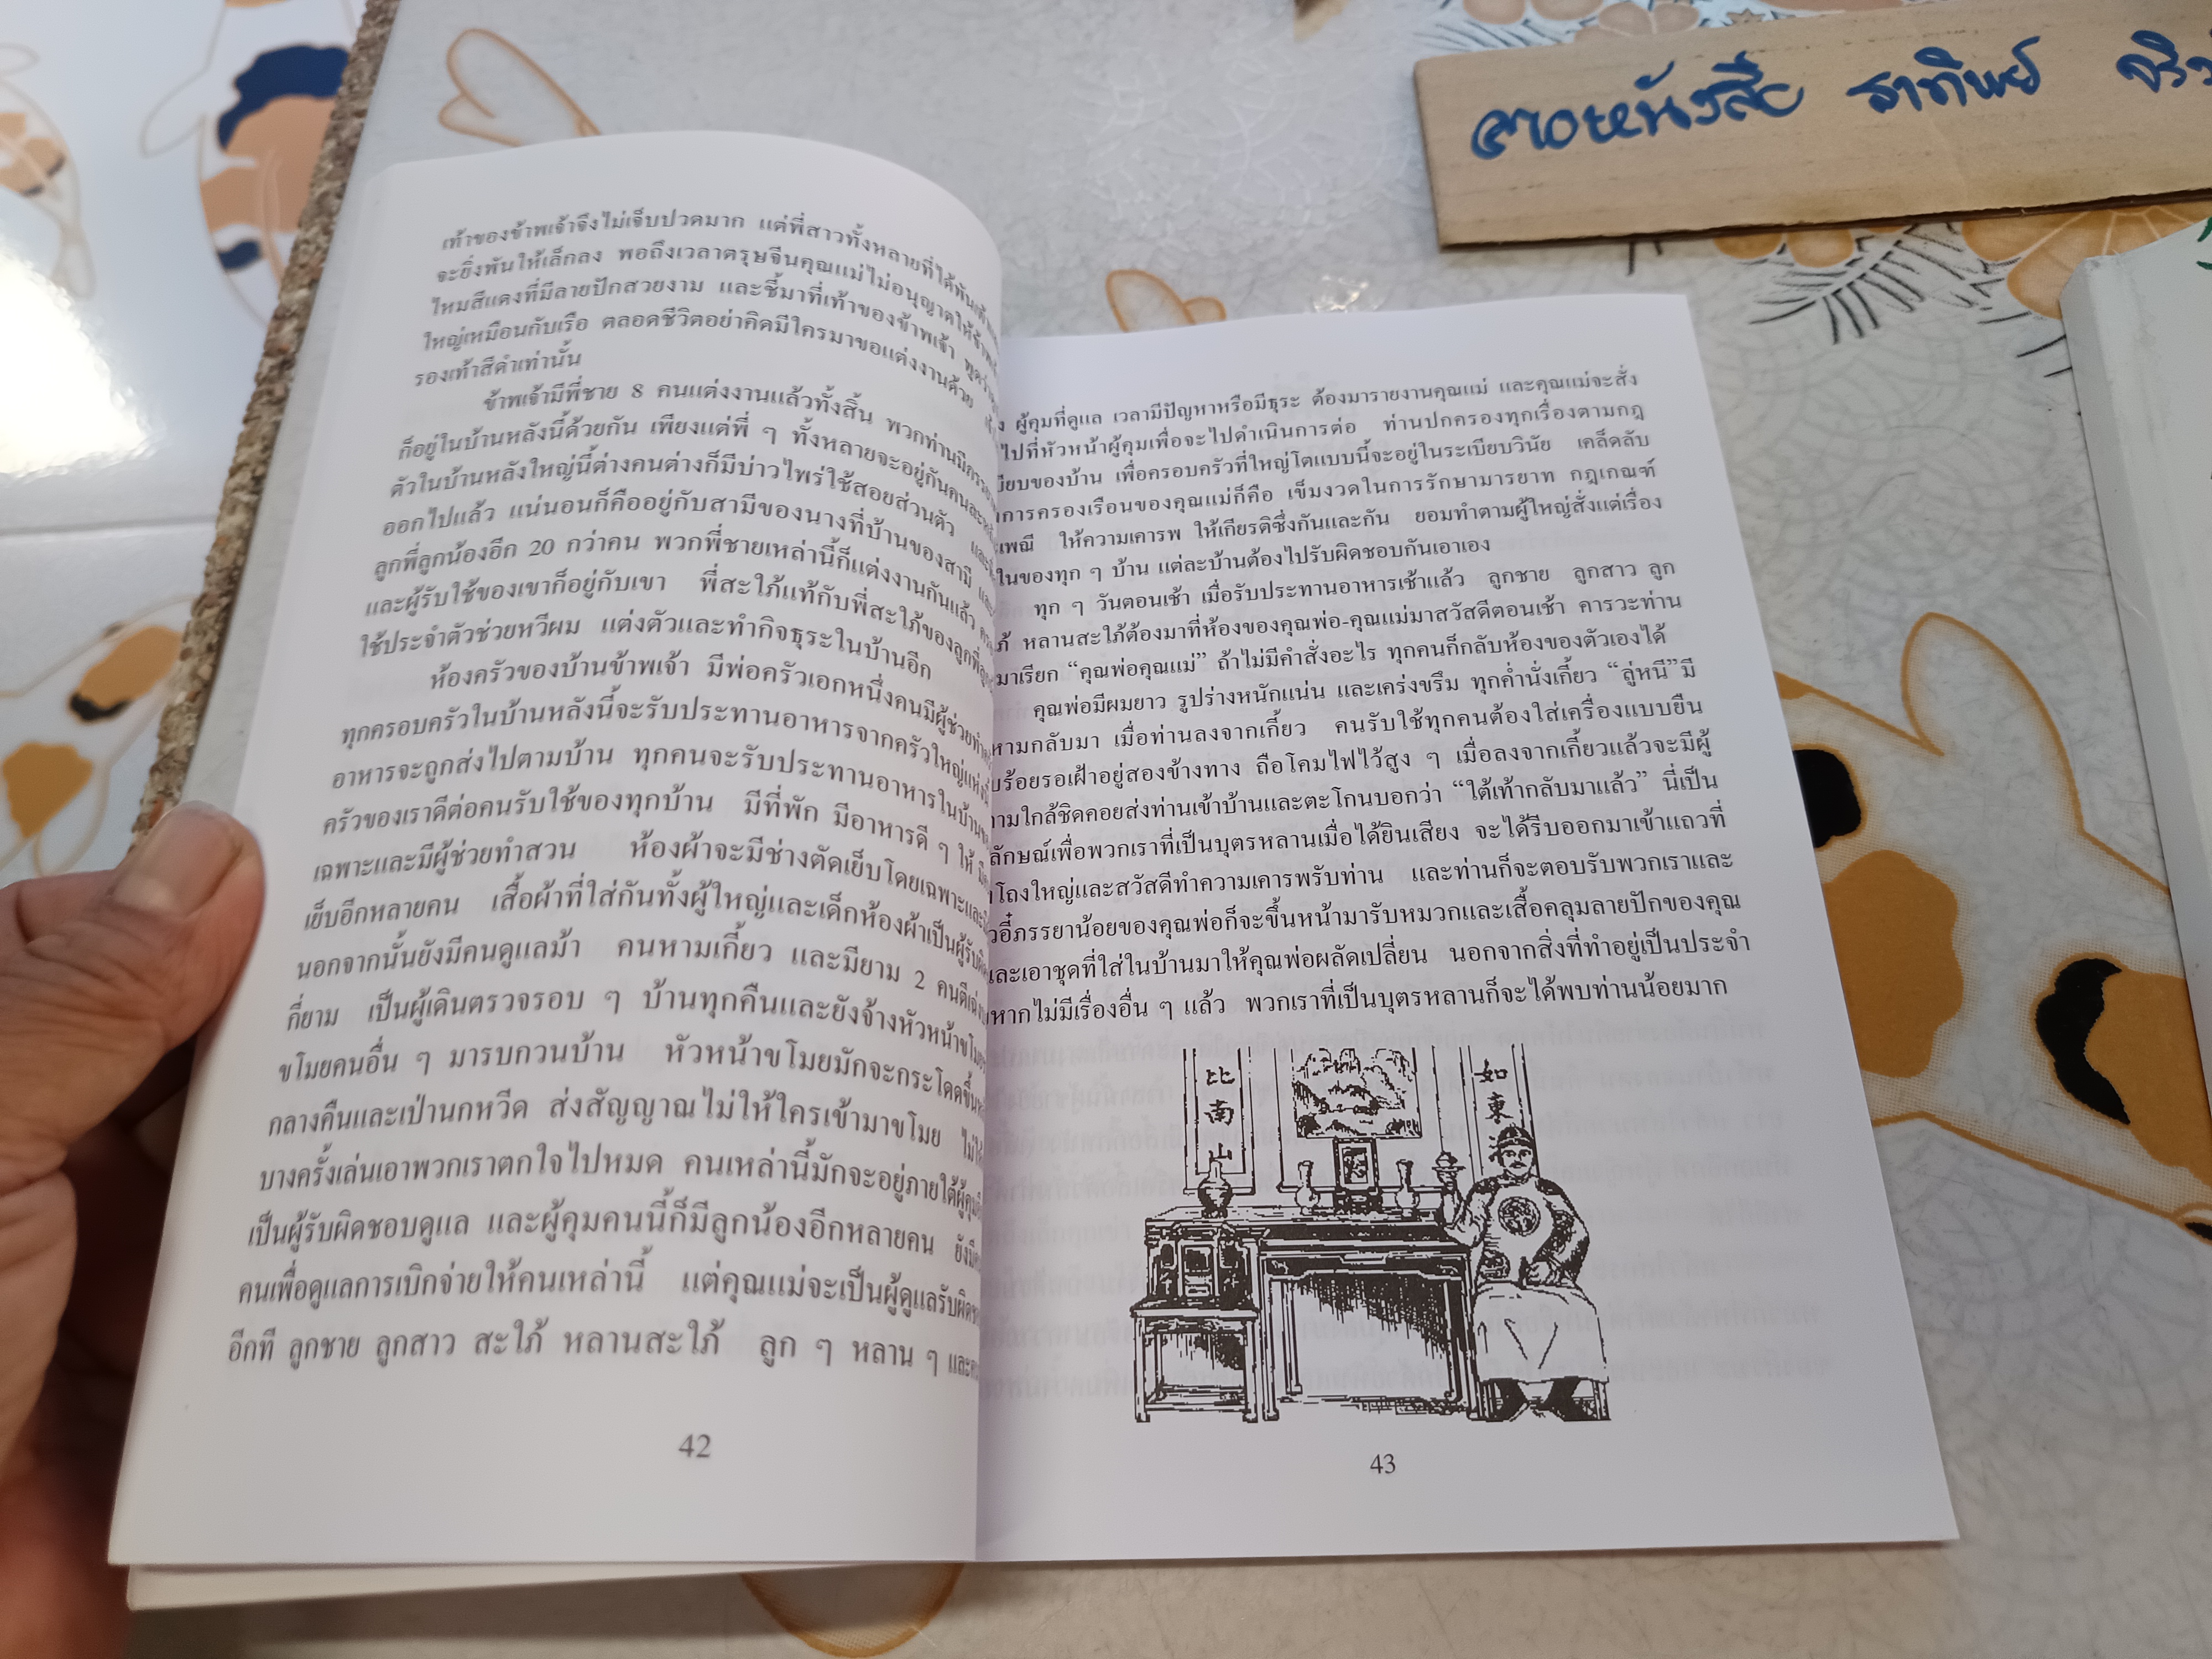 เท้าของข้าพเจ้าจึงไม่เจ็บปวดมาก แต่พี่สาวทั้งหลายที่ได้พันเท้า
จะยิ่งพันให้เล็กลง พอถึงเวลาตรุษจีนคุณแม่ไม่อนุญาตให้
ไหมสีแดงที่มีลายปักสวยงาม และชี้มาที่เท้าของข้าพเจ้า พูดว่า
ใหญ่เหมือนกับเรือ ตลอดชีวิตอย่าคิดมีใครมาขอแต่งงานด้วย
รองเท้าสีดำเท่านั้น
ข้าพเจ้ามีพี่ชาย 8 คนแต่งงานแล้วทั้งสิ้น พวกท่านมีภรรยา
ก็อยู่ในบ้านหลังนี้ด้วยกัน เพียงแต่พี่ ๆ ทั้งหลายจะอยู่กันคนละ
ตัวในบ้านหลังใหญ่นี้ต่างคนต่างก็มีบ่าวไพร่ใช้สอยส่วนตัว
ออกไปแล้ว แน่นอนก็คืออยู่กับสามีของนางที่บ้านของสามี และ
ลูกพี่ลูกน้องอีก 20 กว่าคน พวกพี่ชายเหล่านี้ก็แต่งงานกันแล้ว
และผู้รับใช้ของเขาก็อยู่กับเขา พี่สะใภ้แท้กับพี่สะใภ้ของลูกพี่
ใช้ประจำตัวช่วยหวีผม แต่งตัวและทำกิจธุระในบ้านอีก
ห้องครัวของบ้านข้าพเจ้า มีพ่อครัวเอกหนึ่งคนมีผู้ช่วย
ทุกครอบครัวในบ้านหลังนี้จะรับประทานอาหารจากครัวใหญ่แห่งนี้
อาหารจะถูกส่งไปตามบ้าน ทุกคนจะรับประทานอาหารในบ้าน
ครัวของเราดีต่อคนรับใช้ของทุกบ้าน มีที่พัก มีอาหารดี ๆ ให้
เฉพาะและมีผู้ช่วยทำสวน ห้องผ้าจะมีช่างตัดเย็บโดยเฉพาะและ
เย็บอีกหลายคน เสื้อผ้าที่ใส่กันทั้งผู้ใหญ่และเด็กห้องผ้าเป็นผู้
นอกจากนั้นยังมีคนดูแลม้า คนหามเกี้ยว และมียาม 2 คน
กี่ยาม เป็นผู้เดินตรวจรอบ ๆ บ้านทุกคืนและยังจ้างหัวหน้าขโมย
ขโมยคนอื่น ๆ มารบกวนบ้าน หัวหน้าขโมยมักจะกระโดดขึ้น
กลางคืนและเป่านกหวีด ส่งสัญญาณไม่ให้ใครเข้ามาขโมย
บางครั้งเล่นเอาพวกเราตกใจไปหมด คนเหล่านี้มักจะอยู่ภายใต้
เป็นผู้รับผิดชอบดูแล และผู้คุมคนนี้ก็มีลูกน้องอีกหลายคน
คนเพื่อดูแลการเบิกจ่ายให้คนเหล่านี้ แต่คุณแม่จะเป็นผู้ดูแลรับผิด
อีกที ลูกชาย ลูกสาว สะใภ้ หลานสะใภ้ ลูก ๆ หลาน ๆ และ
42
ผู้คุมที่ดูแล เวลามีปัญหาหรือมีธุระ ต้องมารายงานคุณแม่ และคุณแม่จะสั่ง
ไปที่หัวหน้าผู้คุมเพื่อจะไปดำเนินการต่อ ท่านปกครองทุกเรื่องตามกฎ
เบียบของบ้าน เพื่อครอบครัวที่ใหญ่โตแบบนี้จะอยู่ในระเบียบวินัย เคล็ดลับ
การครองเรือนของคุณแม่ก็คือ เข็มงวดในการรักษามารยาท กฎเกณฑ์
เพณี ให้ความเคารพ ให้เกียรติซึ่งกันและกัน ยอมทำตามผู้ใหญ่สั่งแต่เรื่อง
ในของทุก ๆ บ้าน แต่ละบ้านต้องไปรับผิดชอบกันเอาเอง
ทุก ๆ วันตอนเช้า เมื่อรับประทานอาหารเช้าแล้ว ลูกชาย ลูกสาว ลูก
ภ้ หลานสะใภ้ต้องมาที่ห้องของคุณพ่อ-คุณแม่มาสวัสดีตอนเช้า คารวะท่าน
มาเรียก “คุณพ่อคุณแม่” ถ้าไม่มีคำสั่งอะไร ทุกคนก็กลับห้องของตัวเองได้
คุณพ่อมีผมยาว รูปร่างหนักแน่น และเคร่งขรึม ทุกค่ำนั่งเกี้ยว “ลู่หนี”มี
หามกลับมา เมื่อท่านลงจากเกี้ยว คนรับใช้ทุกคนต้องใส่เครื่องแบบยืน
บร้อยรอเฝ้าอยู่สองข้างทาง ถือโคมไฟไว้สูง ๆ เมื่อลงจากเกี้ยวแล้วจะมีผู้
ตามใกล้ชิดคอยส่งท่านเข้าบ้านและตะโกนบอกว่า “ใต้เท้ากลับมาแล้ว” นี่เป็น
ลักษณ์เพื่อพวกเราที่เป็นบุตรหลานเมื่อได้ยินเสียง จะได้รีบออกมาเข้าแถวที่
โถงใหญ่และสวัสดีทำความเคารพรับท่าน และท่านก็จะตอบรับพวกเราและ
วอี๋ภรรยาน้อยของคุณพ่อก็จะขึ้นหน้ามารับหมวกและเสื้อคลุมลายปักของคุณ
และเอาชุดที่ใส่ในบ้านมาให้คุณพ่อผลัดเปลี่ยน นอกจากสิ่งที่ทำอยู่เป็นประจำ
หากไม่มีเรื่องอื่น ๆ แล้ว พวกเราที่เป็นบุตรหลานก็จะได้พบท่านน้อยมาก
比南山
如東
43
ลายหนังสือ